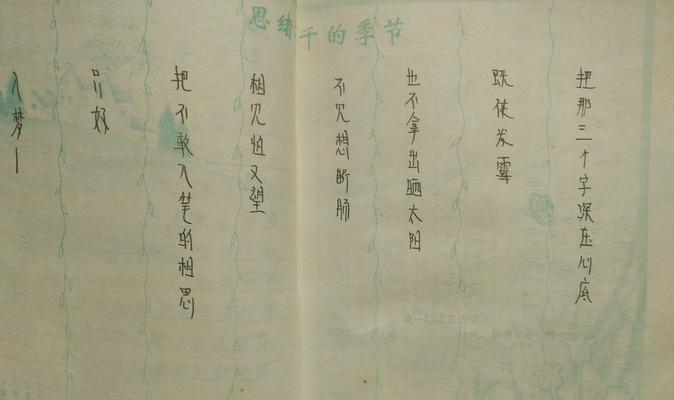 思绪千的季节
把那三个字深压心底
既使发霉
也不拿出晒太阳
不见想断肠
相见怕又望
把不敢入笔的相思
只好
入梦